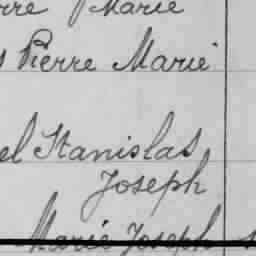 rre Marie
s Pierre Marie
el Stanislas
Joseph
Marie Joseph s